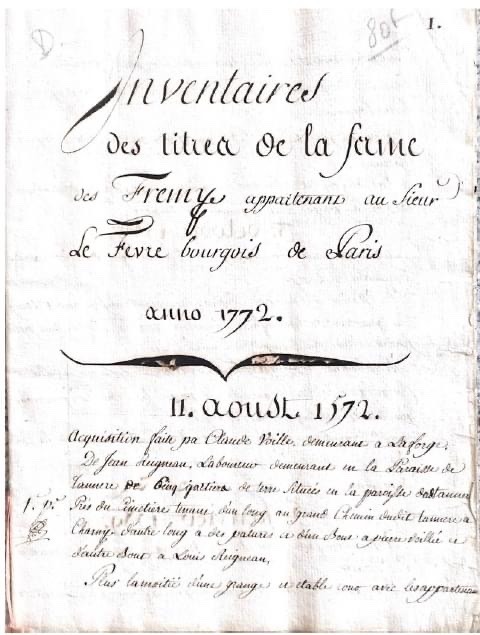 D
80f
1.
Inventaires
des titres de la ferme
des Fremy appartenant au Sieur
Le Fevre bourgois de Paris
anno 1772.
11. aoust 1572.
Acquisition faite pa Claude Voille, demeurant a Laforge,
De Jean Reigneau, Laboureur demeurant en la Paroisse de
tannere de cinq quartiers de terre situées en la paroisse de tannere
1re. pce.
Pres du cimetiere tenant d'un long au grand chemin dudit tannere a
Charny d'autre long a des patures et d'un bout a pierre Voillée et
d'autre bout a Louis Reigneau,
Plus la moitié d'une grange et etable avec les appartenan